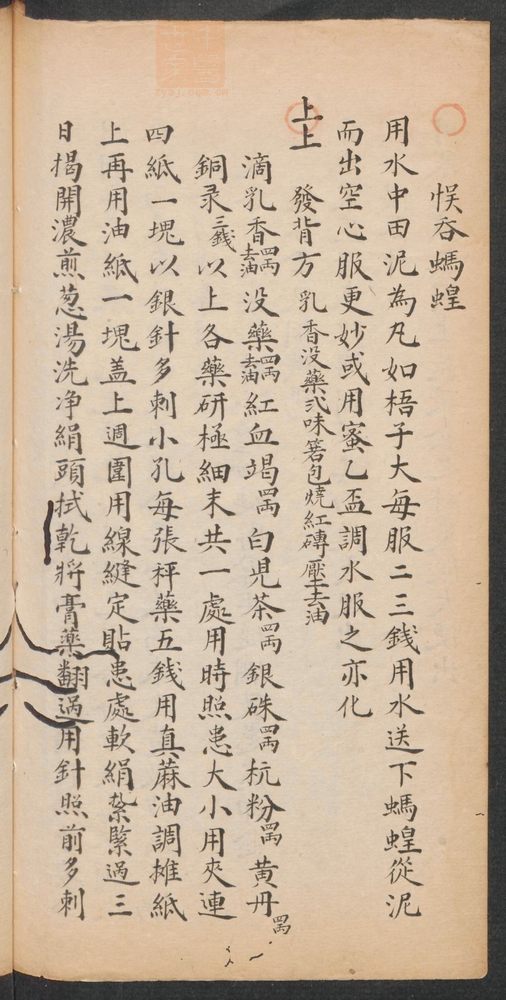 悮吞螞蝗
用水中田泥為凡如梧子大每服二三錢用水送下螞蝗從泥
而出空心服更妙或用蜜乙盃調水服之亦化
上上 發背方 乳香没藥弍味箬包燒紅磚壓去油
滴乳香四両去油没藥四両去油紅血竭四両白児茶四両銀硃四両杭粉四両黄丹四両
銅录三錢以上各藥研極細末共一處用時照患大小用夾連
四紙一塊以銀針多刺小孔每張秤藥五錢用真蔴油調摊紙
上再用油紙一塊盖上週圍用線縫定貼患處軟絹紮緊過三
日揭開濃煎葱湯洗净絹頭拭乾將膏藥翻過用針照前多刺